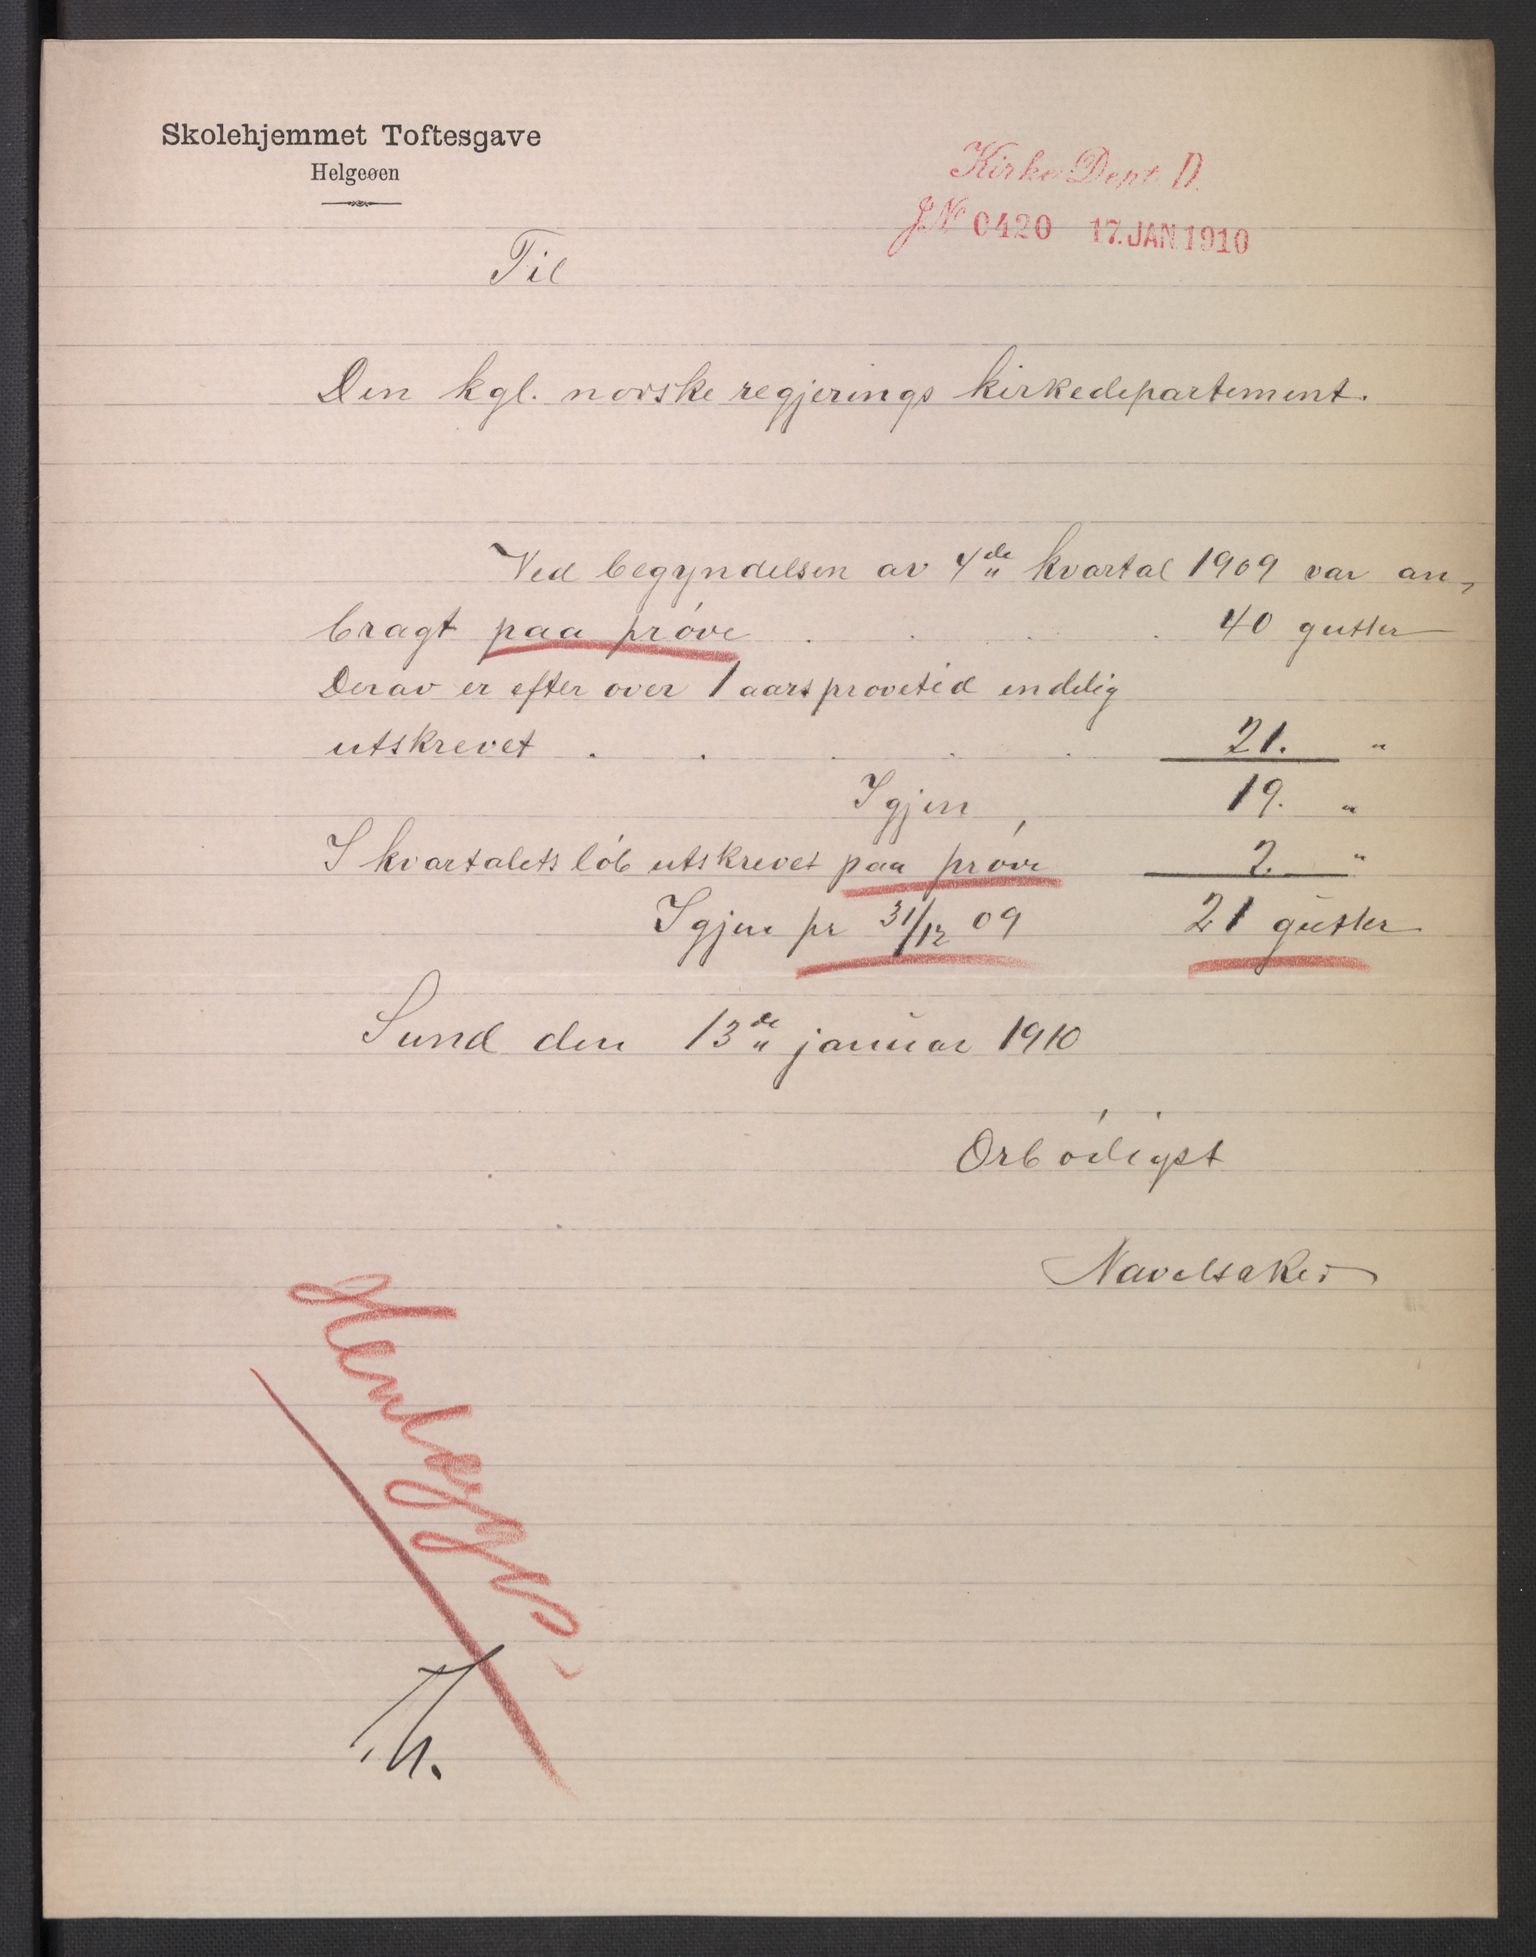 Skolehjemmet Toftesgave
Helgeøen
Kirke Dept. D.
J.No 0420 17. JAN. 1910
Til
Den kgl. norske regjerings kirkedepartement.
Ved begyndelsen av 4de kvartal 1909 var an-
bragt paa prøve . . . . 40 gutter
Derav er efter over 1 aars prøvetid endelig
utskrevet . . . . . 21. "
Igjen 19. "
I kvartalets løb utskrevet paa prøve 2. "
Igjen pr 31/12 09 21 gutter
Sund den 13de januar 1910
Ørbødigst
Navelsaker
Henlægges